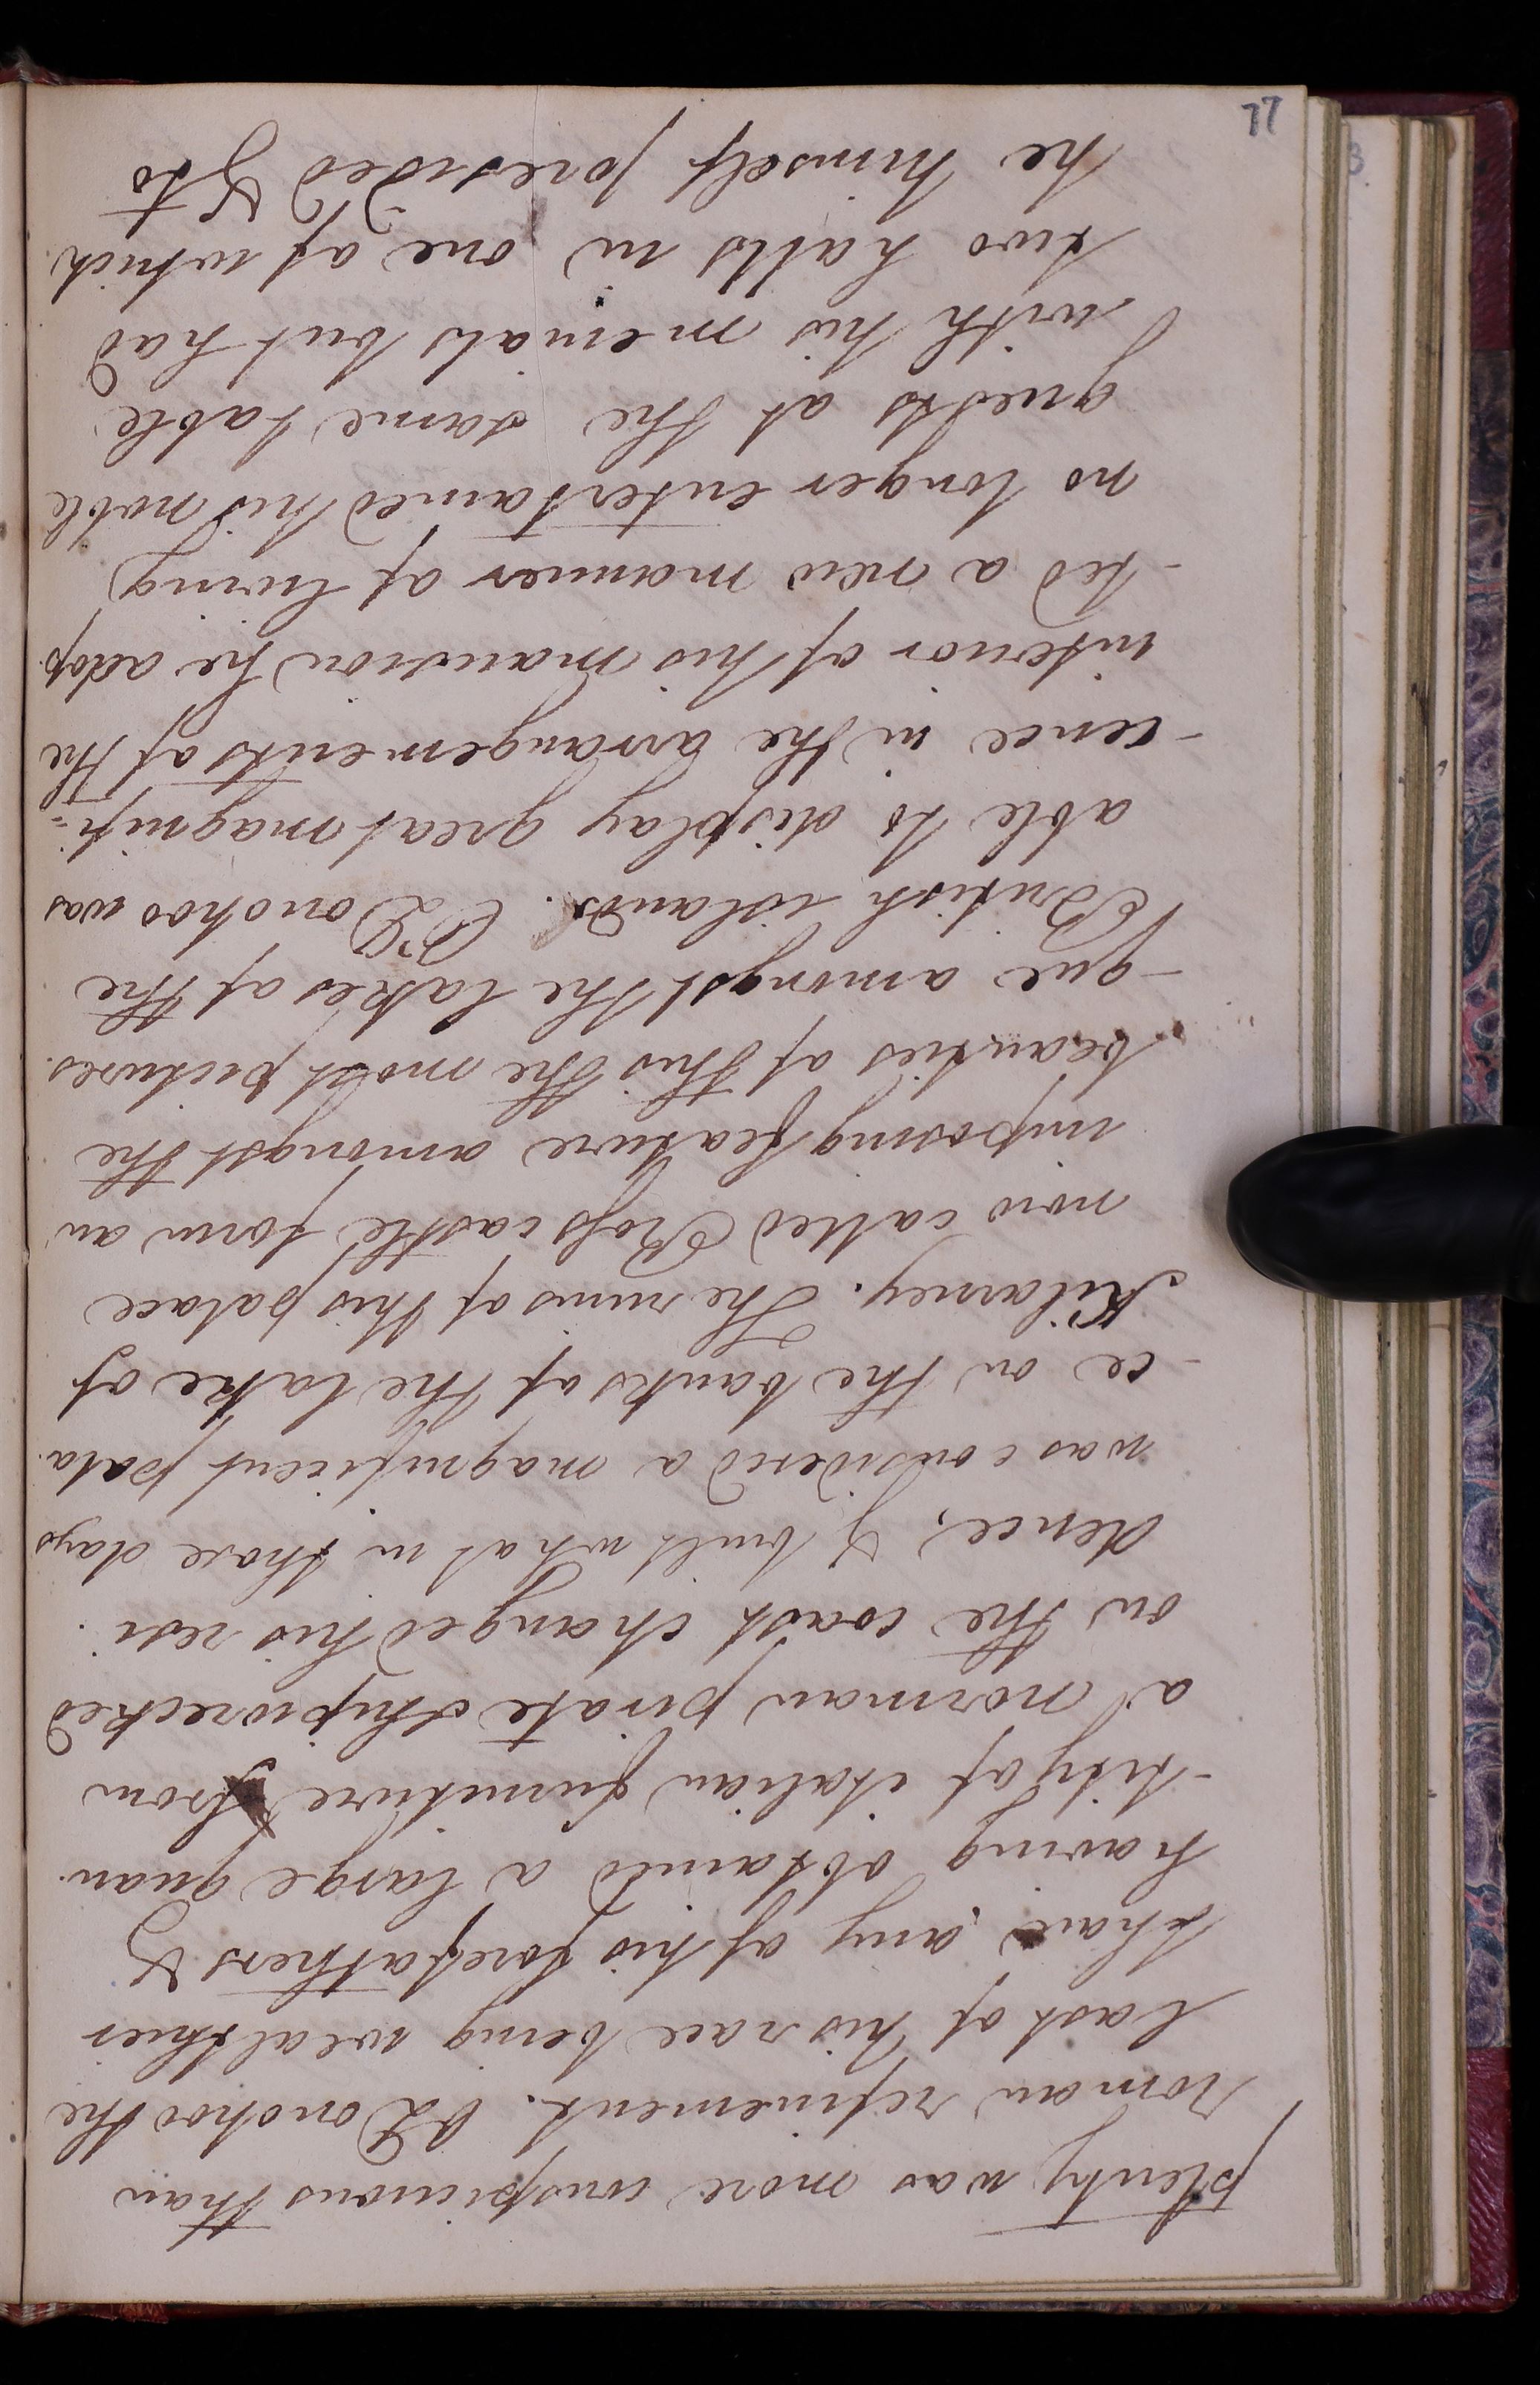 plenty was more conspicuous than
roman refinement. O'Donohoo the
last of his race being wealthier
than any of his forefathers &
having obtained a large quan
-tity of italian furniture from
a norman pirate shipwrecked
on the coast changed his resi
dence, & built what in those days
was considered a magnificent pala
-ce on the banks of the lake of
Kilarney. The ruins of this palace
now called Ross castle form an
imposing feature amongst the
beauties of this the most pictures
-que amongst the lakes of the
British islands. O'Donohoo was
able to display great magnifi=
-cence in the arrangements of the
interior of his mansion he adop
-ted a new manner of living
no longer entertained his noble
guests at the same table
with his menials but had
two halls in one of which
he himself presided & to
77